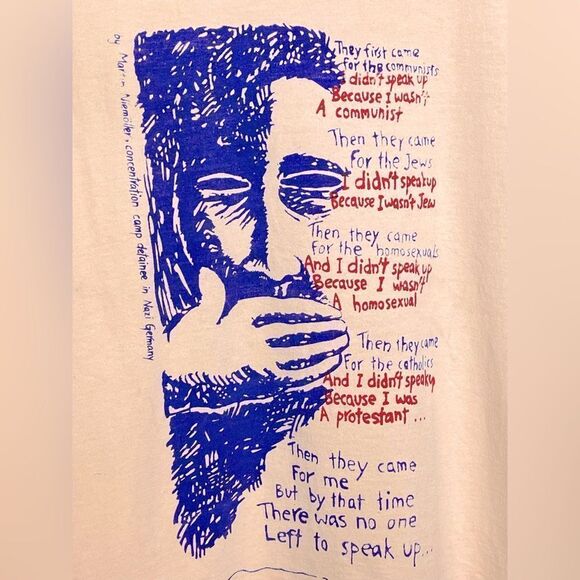 They first came
for the communists
I didn't speak up
Because I wasn't
A communist
Then they came
For the Jews
I didn't speak up
Because I wasn't Jew
Then they came
For the homosexuals
And I didn't speak up
Because I wasn't
A homosexual
Then they came
For the catholics
And I didn't speak up
Because I was
A protestant ...
Then they came
For me
But by that time
There was no one
Left to speak up...
by Martin Niemöller, concentration camp detainee in Nazi Germany